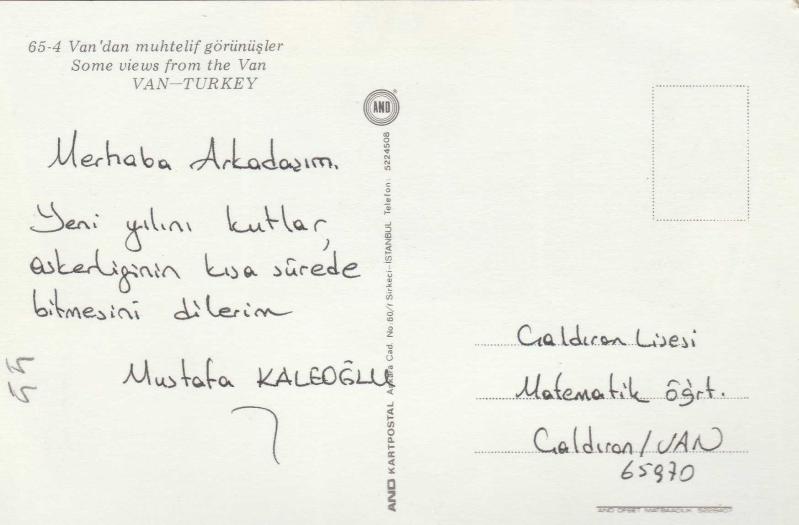 65-4 Van'dan muhtelif görünüşler
Some views from the Van
VAN—TURKEY
AND
Merhaba Arkadaşım.
Yeni yılını kutlar,
askerliginin kısa sürede
bitmesini dilerim
Mustafa KALEOĞLU
55
AND KARTPOSTAL Ankara Cad. No.60/1 Sirkeci-İSTANBUL Telefon: 5224508
Çaldıran Lisesi
Matematik Öğrt.
Çaldıran/VAN
65970
AND OFSET MATBAACILIK